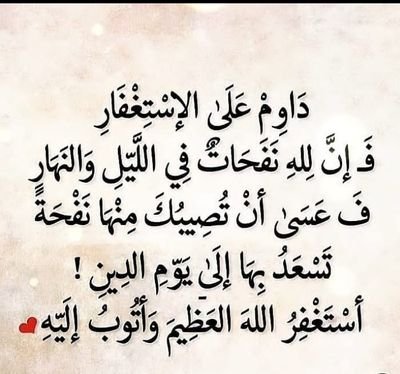 دَاوِمْ عَلَىٰ الإسْتِغْفَارِ
فَـ إنَّ لِلهِ نَفَحَاتٌ فِي اللَّيْلِ وَالنَهَارِ
فَ عَسَىٰ أنْ تُصِيبُكَ مِنْهَا نَفْحَةً
تَسْعَدُ بِهَا إلَىٰ يَوّمِ الدِينِ !
أسْتَغْفِرُ اللهَ العَظِيمَ وَأتُوبُ إلَيّهِ